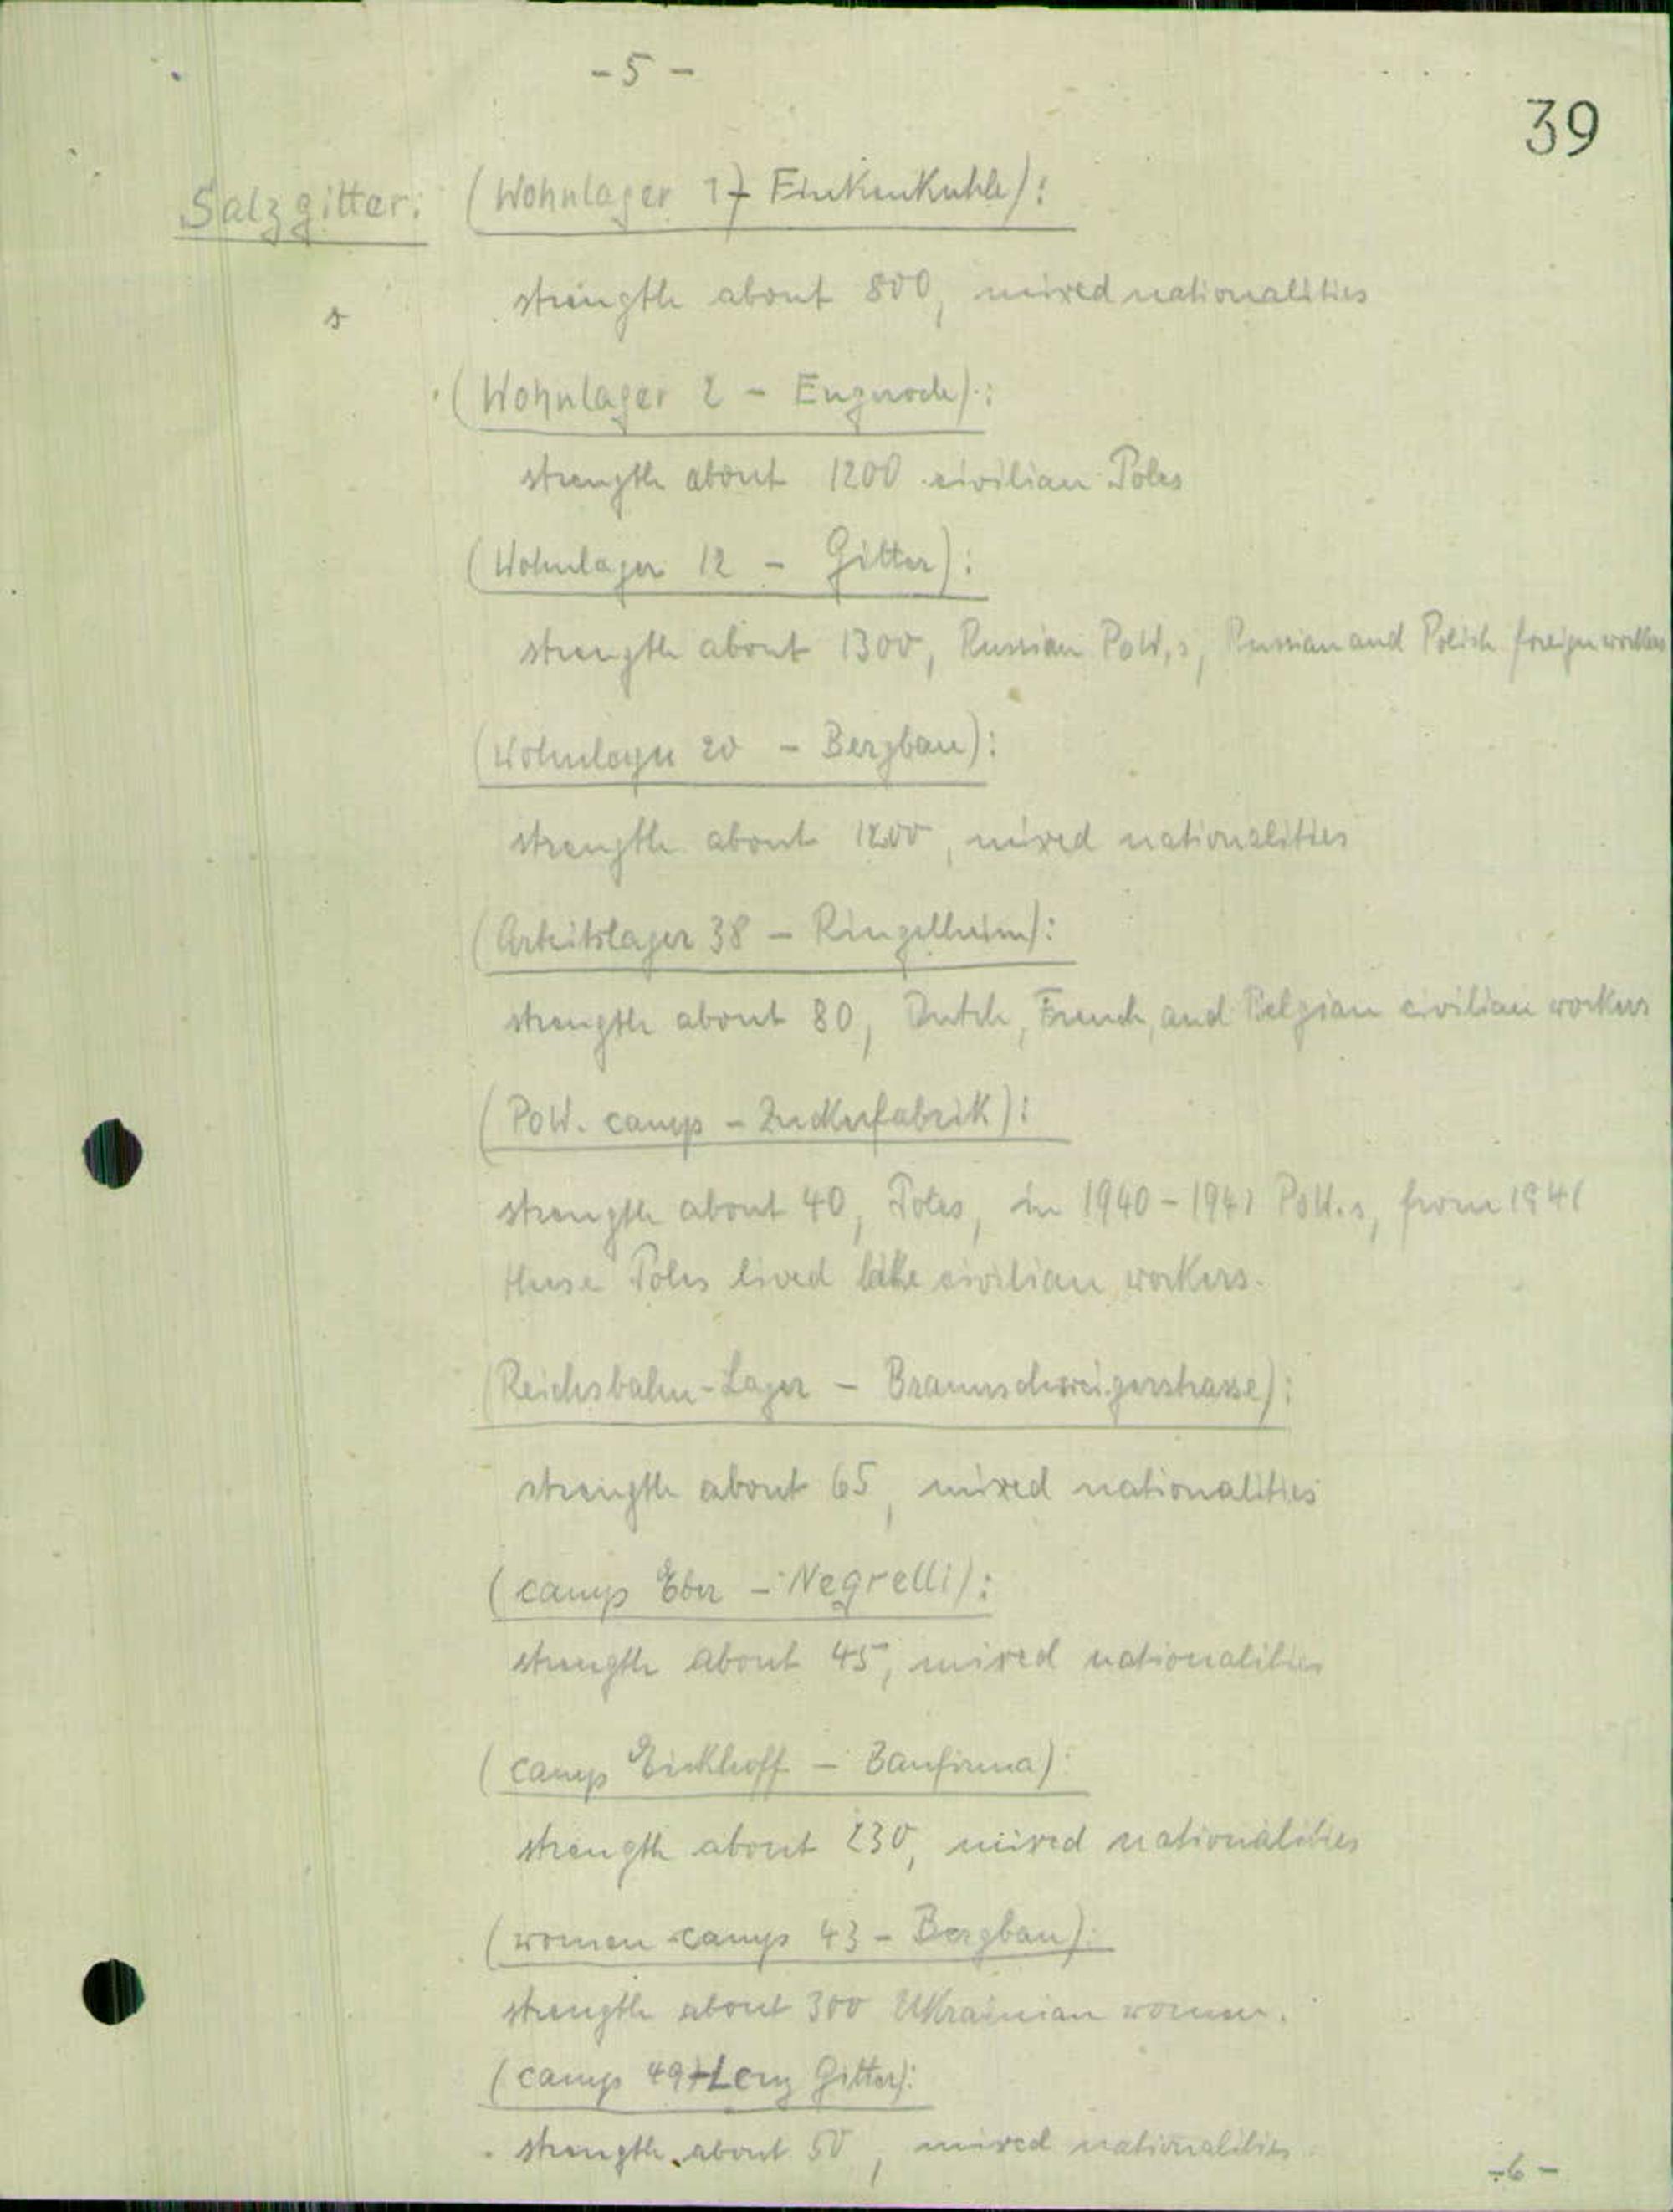 - 5 -
39
Salzgitter: (Wohnlager 1 - Finkenkuhle):
strength about 800, mixed nationalities
(Wohnlager 2 - Engerode):
strength about 1200 civilian Poles
(Wohnlager 12 - Gitter):
strength about 1300, Russian PoW,s, Russian and Polish foreign workers
(Wohnlager 20 - Bergbau):
strength about 1200, mixed nationalities
(Arbeitslager 38 - Ringelheim):
strength about 80, Dutch, French, and Belgian civilian workers
(PoW. camp - Zuckerfabrik):
strength about 40, Poles, in 1940 - 1941 PoW.s, from 1941
these Poles lived like civilian workers.
(Reichsbahn-Lager - Braunschweigerstrasse):
strength about 65, mixed nationalities
(camp Eber - Negrelli):
strength about 45, mixed nationalities
(camp Eickhoff - Baufirma):
strength about 230, mixed nationalities
(women camp 43 - Bergbau):
strength about 300 Ukrainian women.
(camp 49 - Lenz Gitter):
strength about 50, mixed nationalities
- 6 -